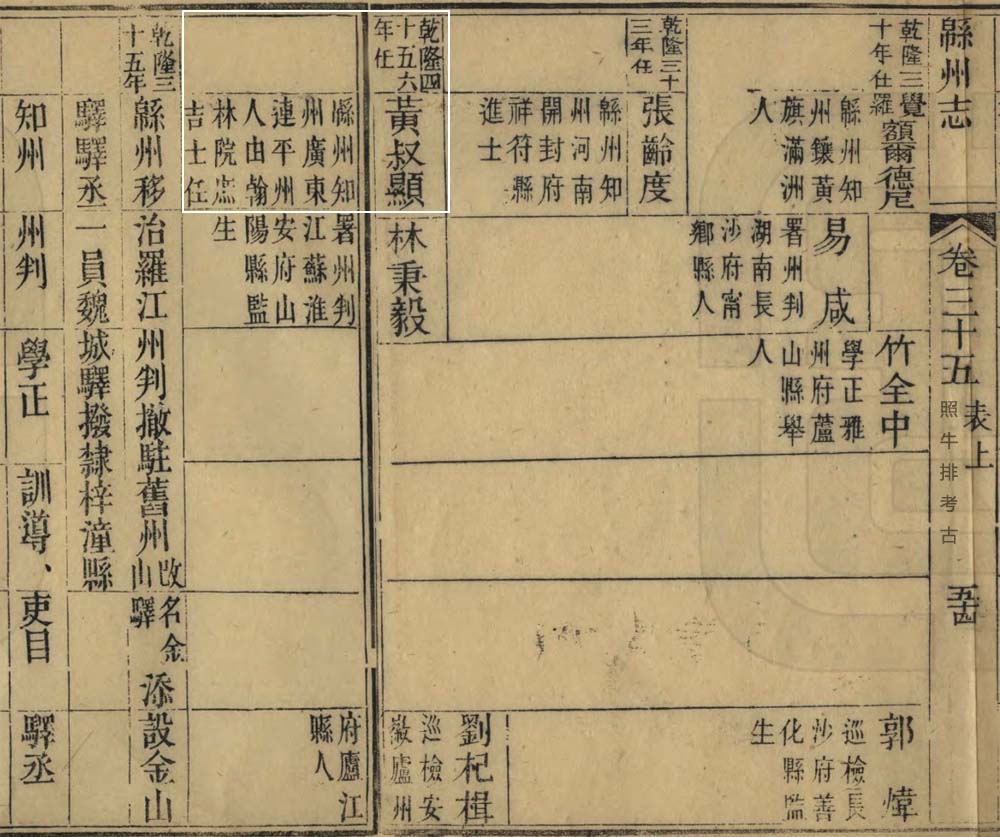 緜州志
卷三十五
表上
五十四
照牛排考古
乾隆三
十年任
覺羅額爾德尼
緜州知
州鑲黃
旗滿洲
人
乾隆三十
三年任
張齡度
緜州知
州河南
開封府
祥符縣
進士
乾隆四
十五六
年任
黃叔顯
緜州知
州廣東
連平州
人由翰
林院庶
吉士任
易咸
署州判
湖南長
沙府甯
鄉縣人
林秉毅
署州判
江蘇淮
安府山
陽縣監
生
竹全中
學正雅
州府蘆
山縣舉
人
郭煒
巡檢長
沙府善
化縣監
生
劉杞楫
巡檢安
徽廬州
府廬江
縣人
乾隆三
十五年
緜州移治羅江州判撤駐舊州改名金山驛添設金山
驛驛丞一員魏城驛撥隸梓潼縣
知州 州判 學正 訓導、吏目 驛丞